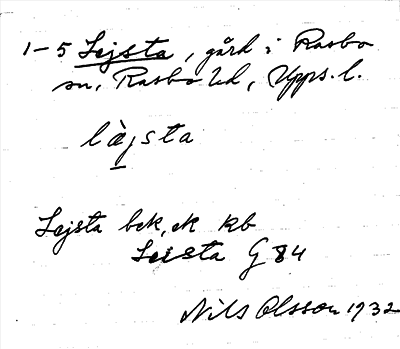 1-5 Lejsta, gård i Rasbo
sn, Rasbo hd, Upps. l.
lä̀jsta
Lejsta bek, ek kb
Leista G 84
Nils Olsson 1932